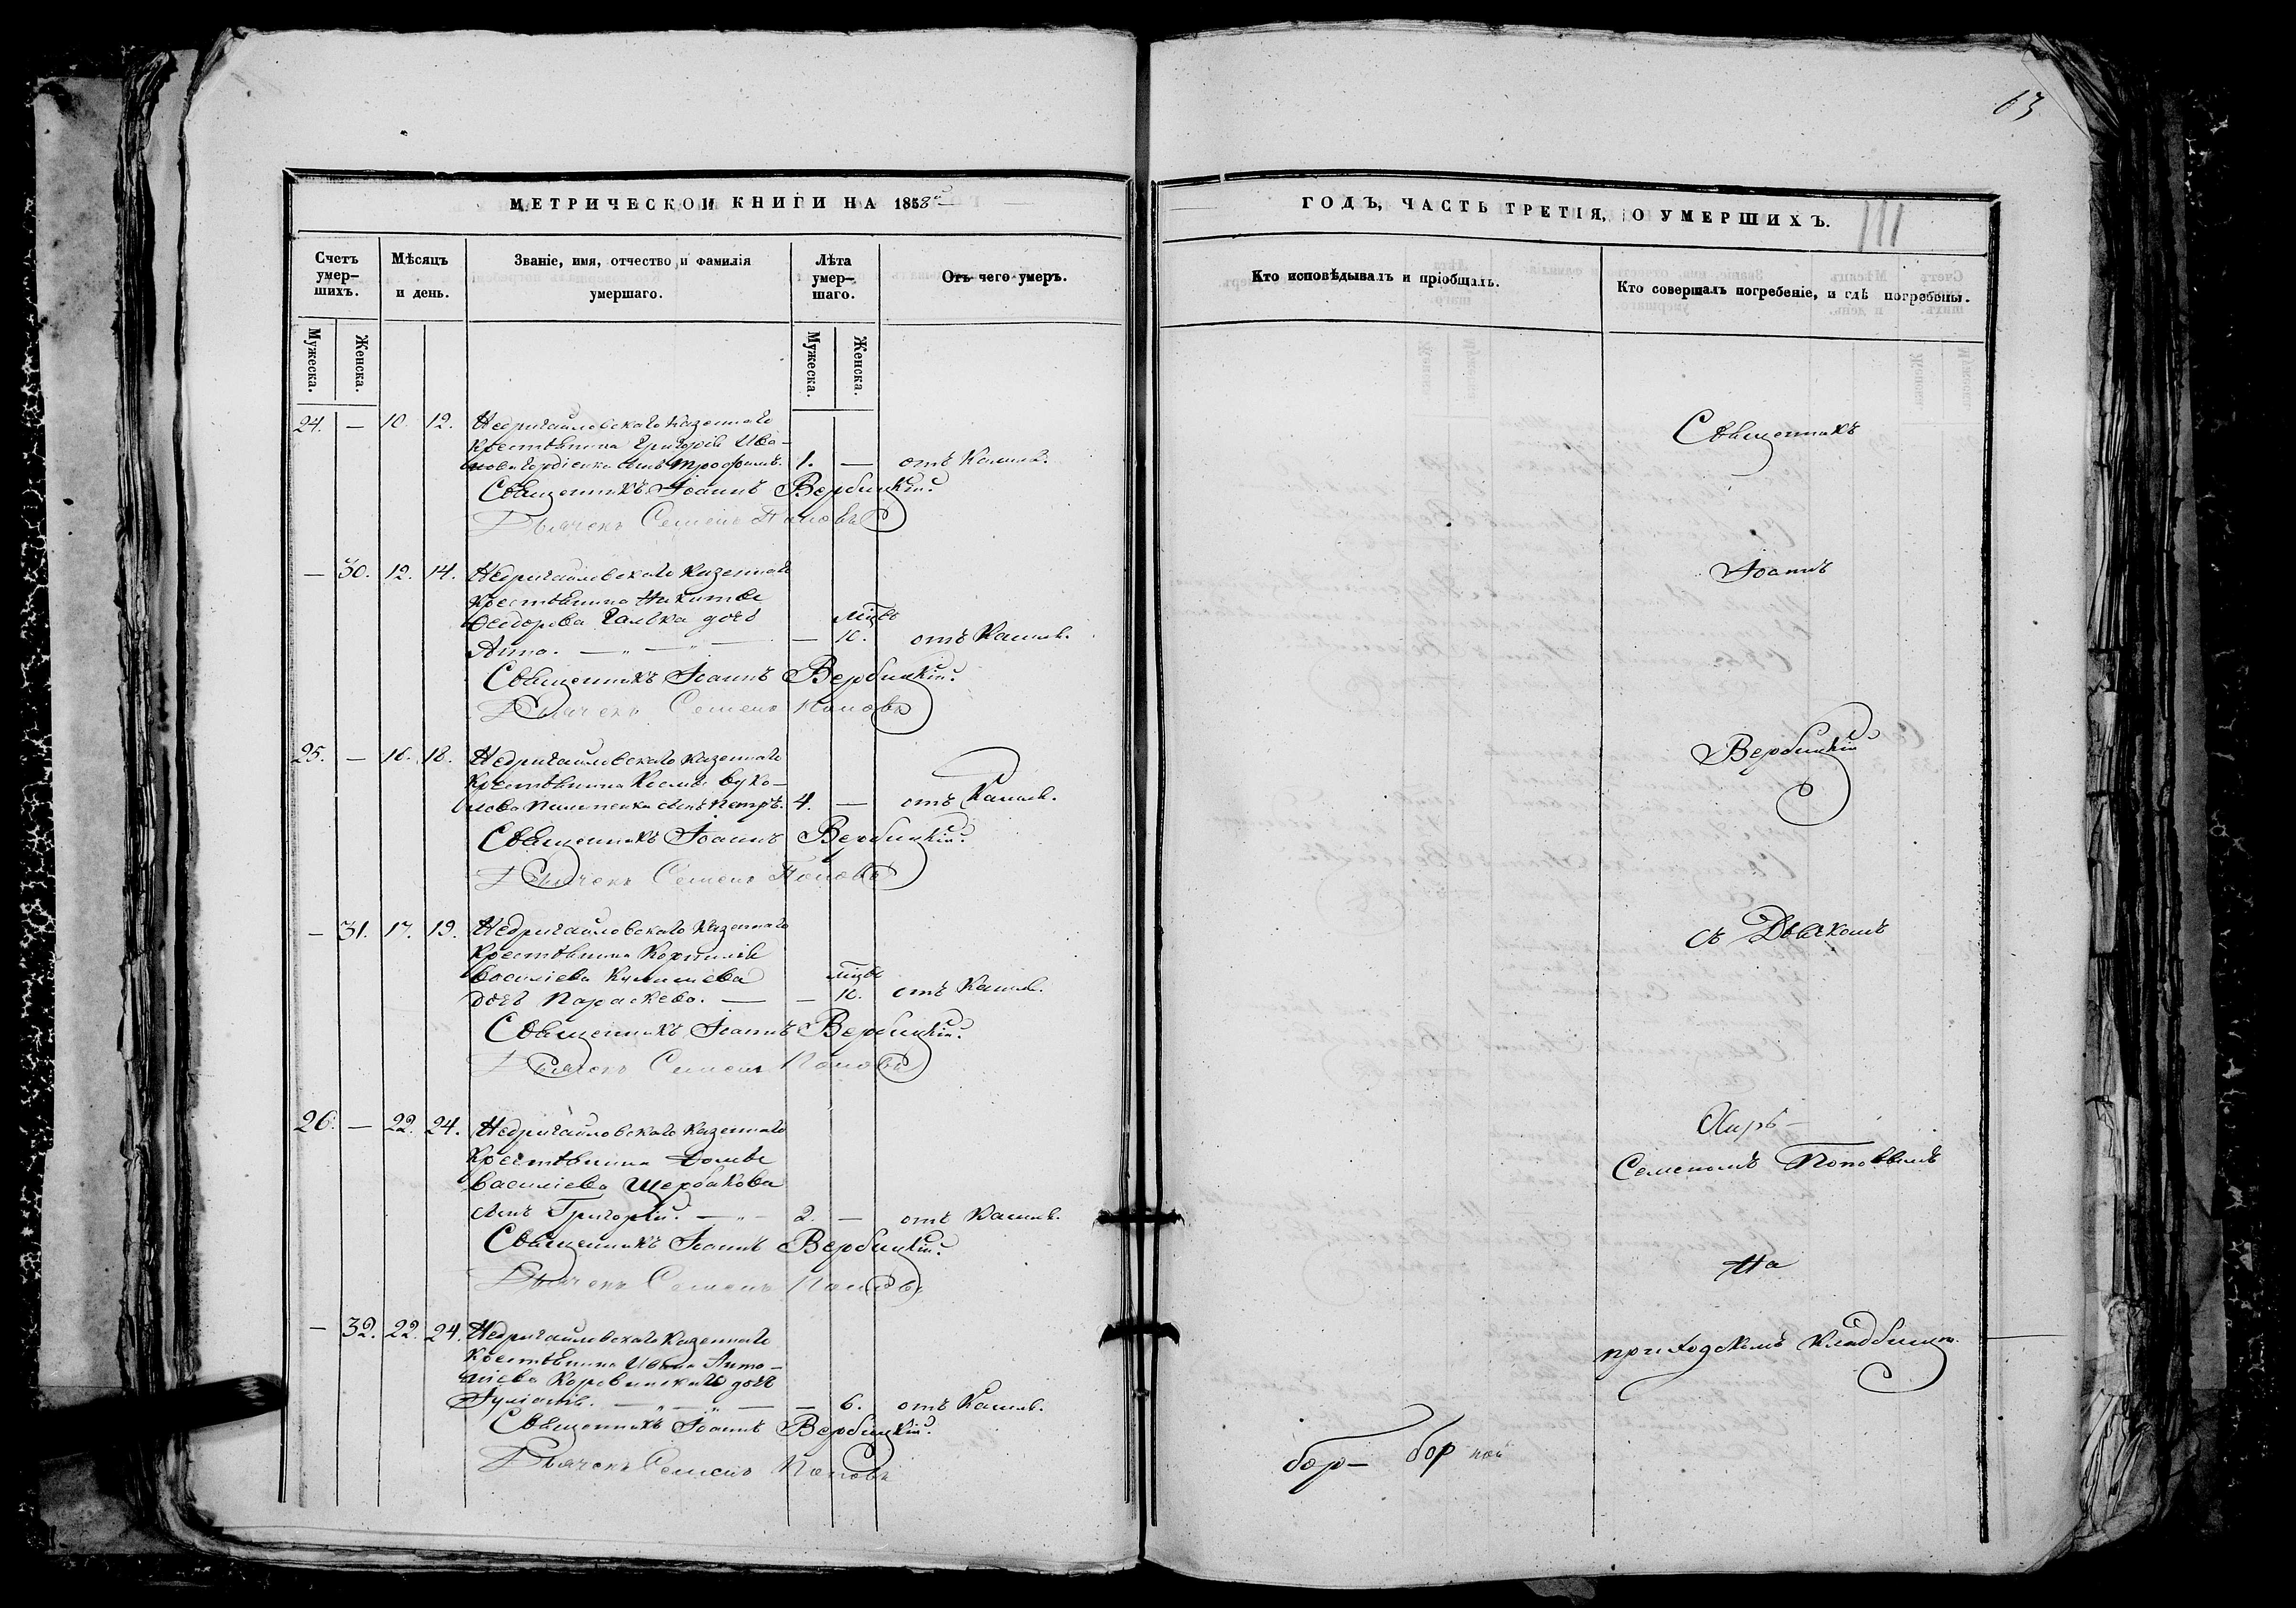 63
МЕТРИЧЕСКОЙ КНИГИ НА 1858й
Счетъ умер-шихъ.
Мѣсяцъ и день.
Званіе, имя, отчество и фамилія умершаго.
Лѣта умер-шаго.
Отъ чего умеръ.
Мужеска.
Женска.
Мужеска.
Женска.
24. — 10. 12. Недригайловскаго казеннаго
крестьянина Григорія Ива-
нова Гордіенка сынъ Трофимъ. 1. — отъ Кашля.
Священникъ Іоаннъ Вербицкій.
Дьячекъ Семенъ Поповъ
— 30. 12. 14. Недригайловскаго казеннаго
крестьянина Никиты
Ѳеодорова Галки дочь мцъ
Анна. — „ — „ — — 10. отъ Кашля.
Священникъ Іоаннъ Вербицкій.
Дьячекъ Семенъ Поповъ
25. — 16. 18. Недригайловскаго казеннаго
крестьянина Космы Вуко-
лова Пилипенка сынъ Петръ. 4. — отъ Кашля.
Священникъ Іоаннъ Вербицкій.
Дьячекъ Семенъ Поповъ
— 31. 17. 19. Недригайловскаго казеннаго
крестьянина Корнилія
Василіева дочь Параскева. — — 10. отъ Кашля.
Священникъ Іоаннъ Вербицкій.
Дьячекъ Семенъ Поповъ
26. — 22. 24. Недригайловскаго казеннаго
крестьянина
Василіева Щербакова
сынъ Григорій. — „ — 2. — отъ Кашля.
Священникъ Іоаннъ Вербицкій.
Дьячекъ Семенъ Поповъ
— 32. 22. 24. Недригайловскаго казеннаго
крестьянина Ивана Анто-
ніева Коровинскаго дочь
Іуліанія. — „ — „ — — 6. отъ Кашля.
Священникъ Іоаннъ Вербицкій.
Дьячекъ Семенъ Поповъ
ГОДЪ, ЧАСТЬ ТРЕТІЯ, О УМЕРШИХЪ.
Кто исповѣдывалъ и пріобщалъ.
Кто совершалъ погребеніе, и гдѣ погребены.
Священникъ
Іоаннъ
Вербицкій
съ Дьячкомъ
Семеномъ Поповымъ
На
приходскомъ кладбищѣ.